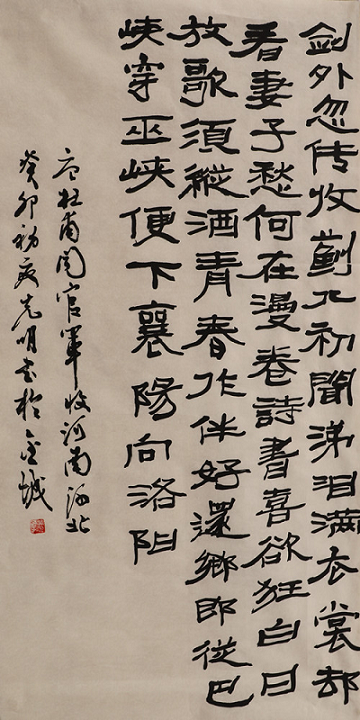 剑外忽传收蓟北初闻涕泪满衣裳却
看妻子愁何在漫卷詩書喜欲狂白日
放歌須縱酒青春作伴好還鄉即從巴
峡穿巫峡便下襄陽向洛阳
唐杜甫闻官軍收河南河北
癸卯初夏先明书於金城